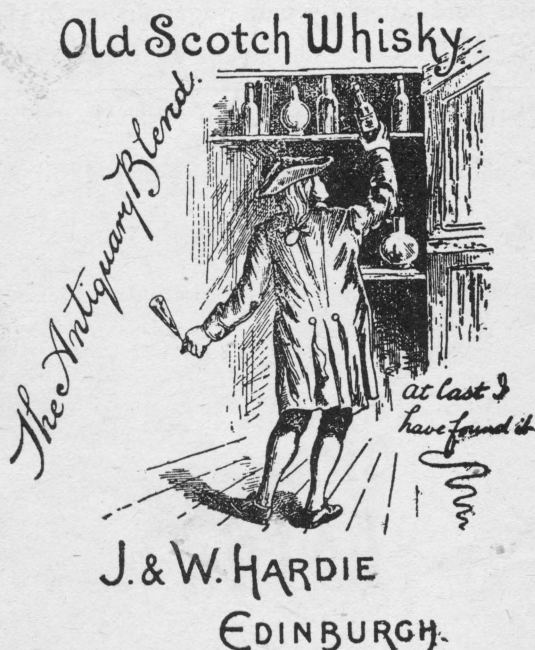 Old Scotch Whisky
The Antiquary Blend.
at last I
have found it
J. & W. HARDIE
EDINBURGH.